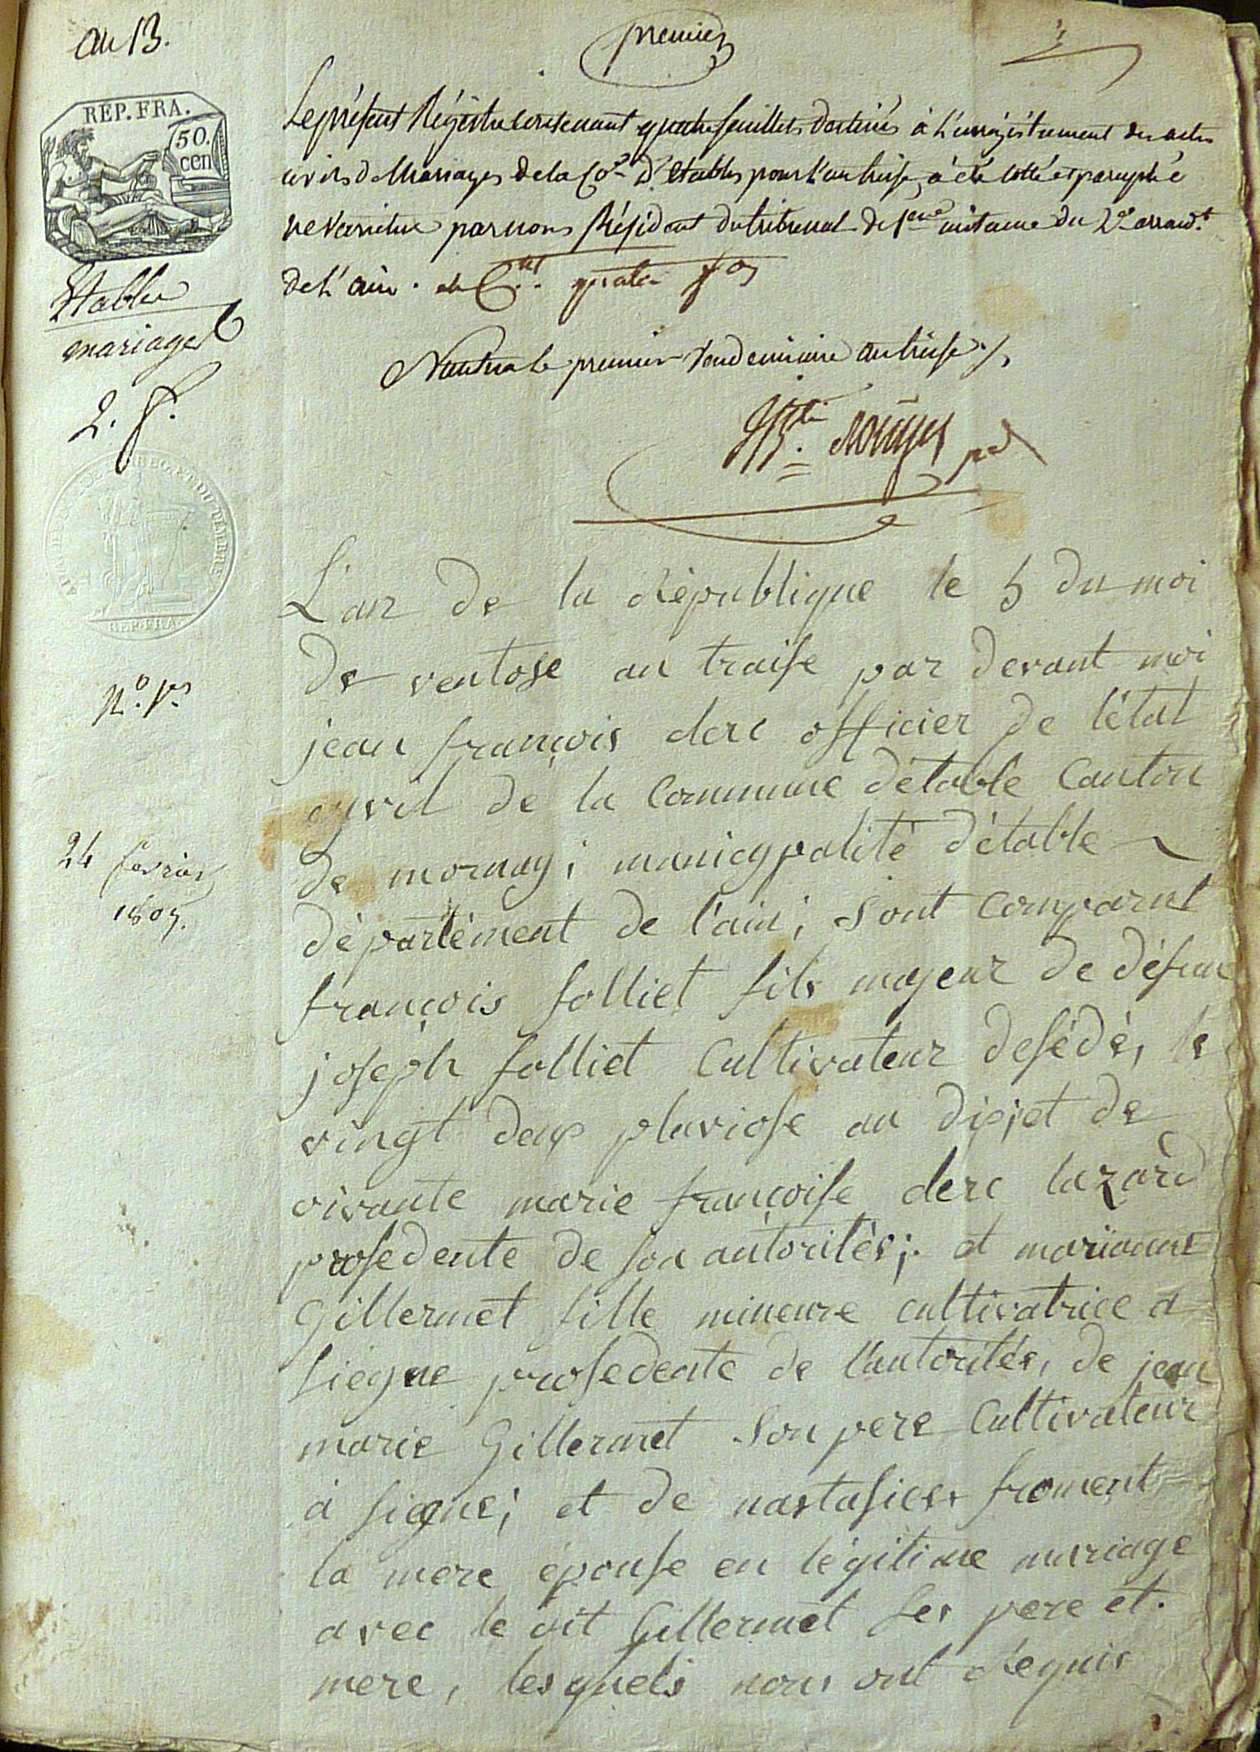 an 13.
premier
REP. FRA.
50.
cen
Le présent Régistre contenant quatre feuillets destinés à L'enrégistrement des actes
civils de Mariages de la Co.ne d'Etables pour l'an treise, à été cotté et paraphé
ne varietur par nous Président du tribunal de 1ere instance du 2e arrond.t
de L'ain .
Nantua le premier Vendemiaire an treise
Etables
mariages
2. f.
REP. FRA.
N.o 1er
24 fevrier
1805.
L'an de la République le 5 du moi
de ventose an traise par devant moi
jean françois clerc officier de l'état
cyvil de la Commune détable Canton
de mornay; manicypalité détable
département de l'ain; sont comparut
françois folliet fils majeur de défun
joseph folliet Cultivateur desédé, le
vingt deux pluviose an dix set de
vivante marie françoise clerc lazard
prosedente de son autorités; et marianne
Gillermet fille mineure cultivatrice a
siegne prosedente de l'autorités, de jean
marie Gillermet son pere Cultivateur
à siegne; et de nastasies froment
la mere épouse en légitime mariage
avec le dit Gillermet ses pere et
mere, lesquels nous ont Requis